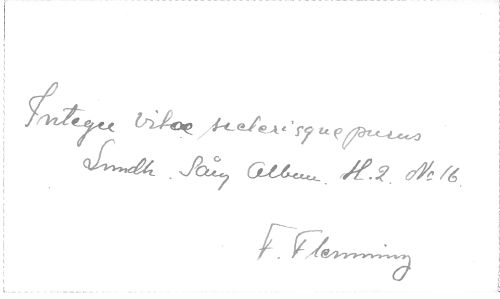 Integer vitae scelerisque purus
Lundh. Sång Album. H.2. No 16.
F. Flemming